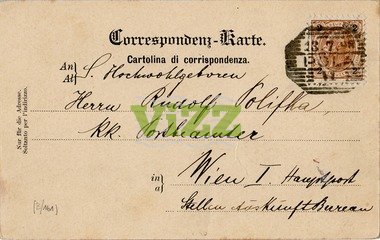 Correspondenz-Karte.
Cartolina di corrispondenza.
An
Al
S. Hochwohlgeboren
Herrn Rudolf Polifka
kk. Postbeamter
in
a
Wien I. Hauptpost
Stellen Auskunft Bureau
Nur für die Adresse.
Soltanto per l'indirizzo.
VIZZ
POLA